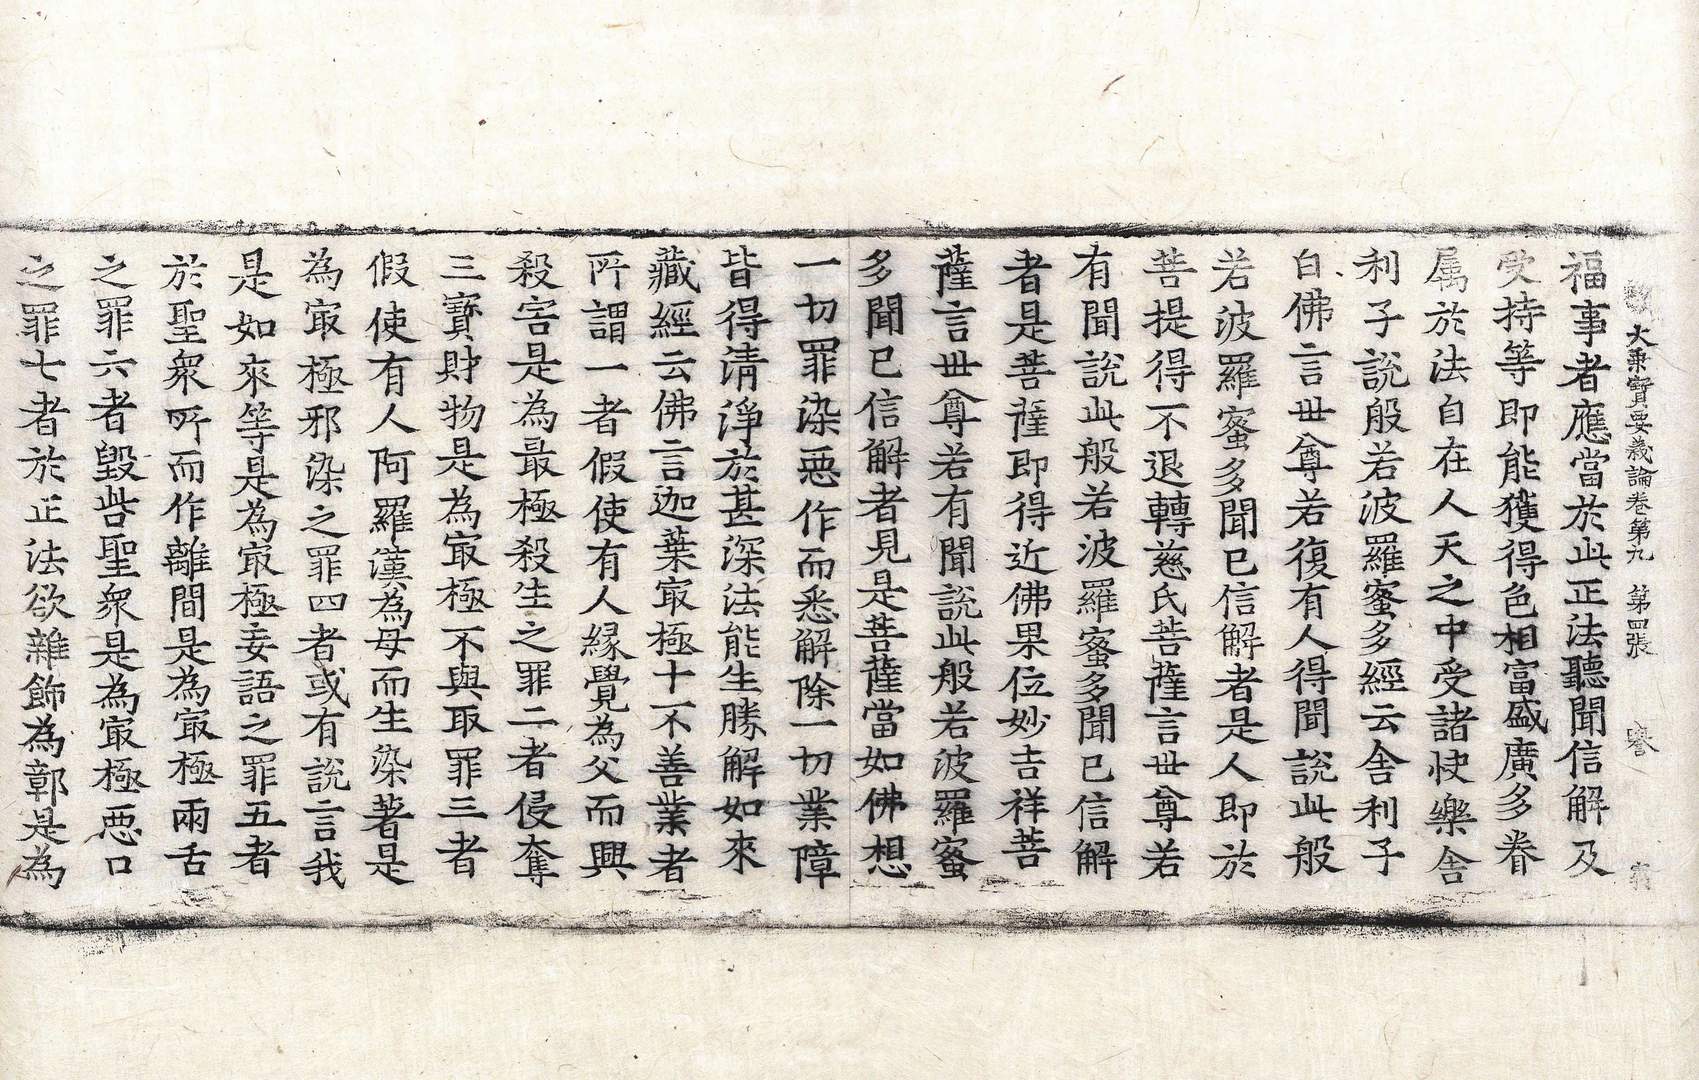 大乗寶要義論卷第九　第四張　譽
福事者應當於此正法聽聞信解及
受持等即能獲得色相富盛廣多眷
属於法自在人天之中受諸快樂舍
利子說般若波羅蜜多經云舍利子
白佛言世尊若復有人得聞說此般
若波羅蜜多聞已信解者是人即於
菩提得不退轉慈氏菩薩言世尊若
有聞說此般若波羅蜜多聞已信解
者是菩薩即得近佛果位妙吉祥菩
薩言世尊若有聞說此般若波羅蜜
多聞已信解者見是菩薩當如佛想
一切罪染惡作而悉解除一切業障
皆得清淨於甚深法能生勝解如來
藏經云佛言迦葉㝡極十不善業者
所謂一者假使有人緣覺為父而興
殺害是為最極殺生之罪二者侵奪
三寶財物是為㝡極不與取罪三者
假使有人阿羅漢為母而生染著是
為㝡極邪染之罪四者或有說言我
是如來等是為㝡極妄語之罪五者
於聖衆所而作離間是為㝡極兩舌
之罪六者毀呰聖衆是為㝡極惡口
之罪七者於正法欲雜飾為鄣是為